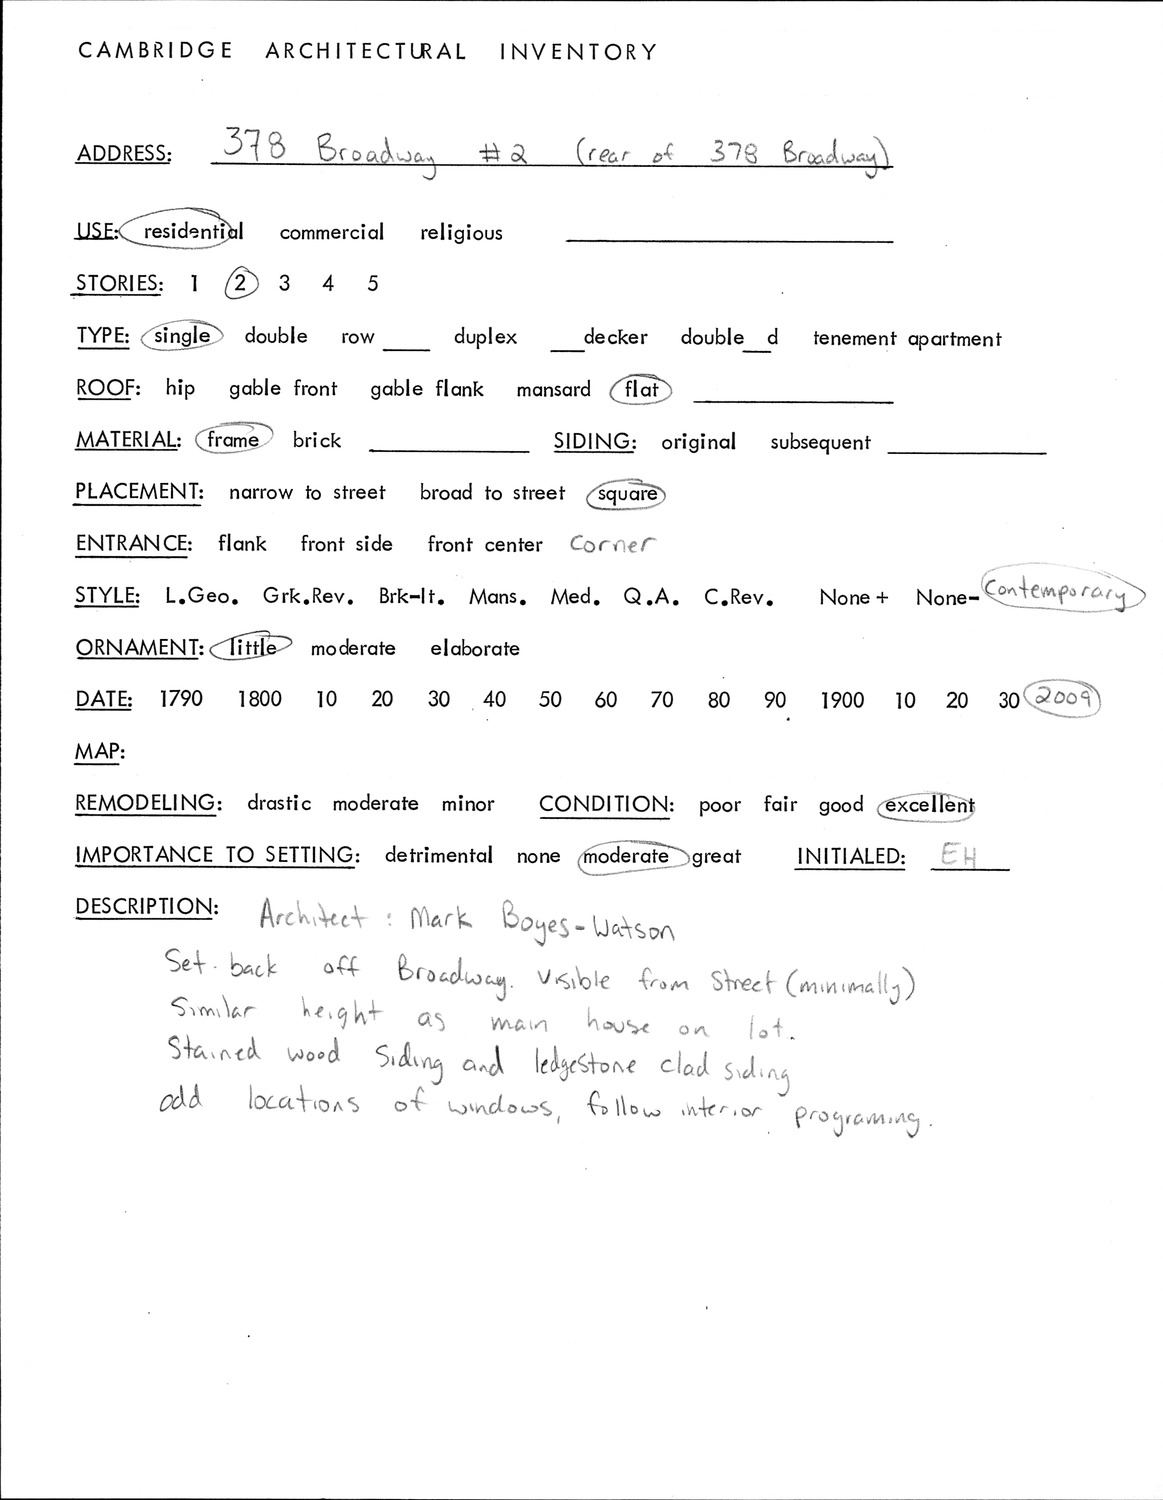 CAMBRIDGE ARCHITECTURAL INVENTORY
ADDRESS: 378 Broadway #2 (rear of 378 Broadway)
USE: residential commercial religious
STORIES: 1 2 3 4 5
TYPE: single double row ___ duplex ___decker double__d tenement apartment
ROOF: hip gable front gable flank mansard flat
MATERIAL: frame brick SIDING: original subsequent
PLACEMENT: narrow to street broad to street square
ENTRANCE: flank front side front center Corner
STYLE: L.Geo. Grk.Rev. Brk-It. Mans. Med. Q.A. C.Rev. None+ None- Contemporary
ORNAMENT: little moderate elaborate
DATE: 1790 1800 10 20 30 40 50 60 70 80 90 1900 10 20 30 2009
MAP:
REMODELING: drastic moderate minor CONDITION: poor fair good excellent
IMPORTANCE TO SETTING: detrimental none moderate great INITIALED: EH
DESCRIPTION: Architect: Mark Boyes-Watson
Set back off Broadway. Visible from Street (minimally)
Similar height as main house on lot.
Stained wood siding and ledgestone clad siding
odd locations of windows, follow interior programing.